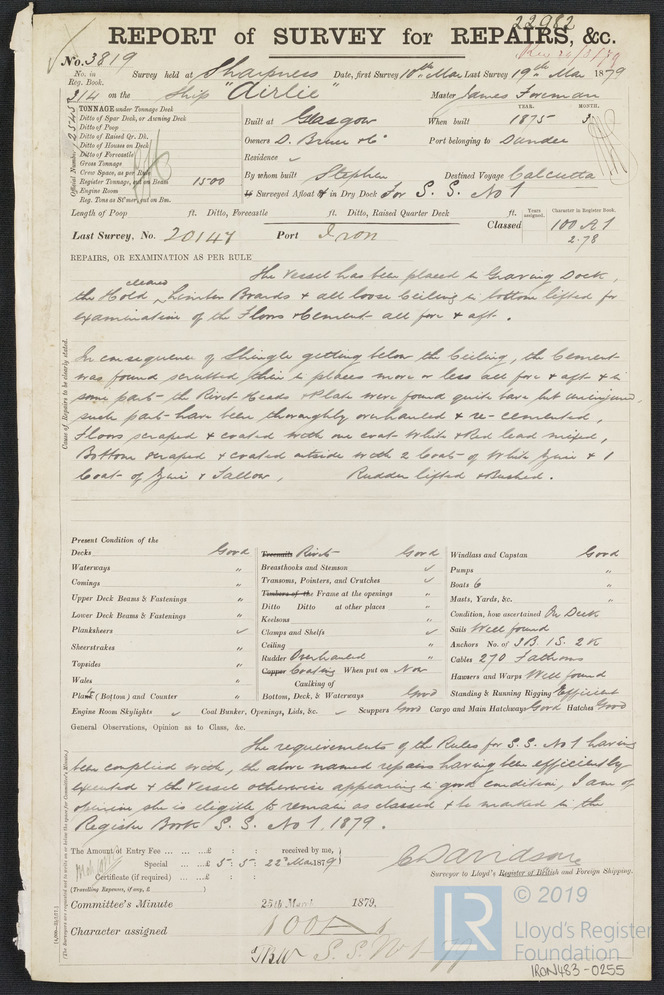 22982
REPORT of SURVEY for REPAIRS, &c.
No. 3819
No. in Reg. Book. Survey held at Sharpness Date, first Survey 10th Mar Last Survey 19th Mar 1879
214 on the Ship "Airlie" Master James Foreman
TONNAGE under Tonnage Deck
Ditto of Spar Deck, or Awning Deck
Ditto of Poop
Ditto of Raised Qr. Dk.
Ditto of Houses on Deck
Ditto of Forecastle
Gross Tonnage
Crew Space, as per Rule
Register Tonnage, cut on Beam 1500
Engine Room
Reg. Tons as St'mer, cut on Bm.
Official Number
YEAR. MONTH.
Built at Glasgow When built 1875 3
Owners D. Bruce & Co Port belonging to Dundee
Residence
By whom built Stephen Destined Voyage Calcutta
If Surveyed Afloat or in Dry Dock For S. S. No 1
Length of Poop ft. Ditto, Forecastle ft. Ditto, Raised Quarter Deck ft.
Years assigned. Character in Register Book.
Last Survey, No. 20147 Port Iron Classed 100 A1
2.78
REPAIRS, OR EXAMINATION AS PER RULE
The Vessel has been placed in Graving Dock,
the Hold cleared, Limber Boards & all loose Ceiling in bottom lifted for
examination of the Floors & Cement all fore & aft.
Cause of Repairs to be clearly stated.
In consequence of Shingle getting below the Ceiling, the Cement
was found scrubbed thin in places more or less all fore & aft & in
some parts the Rivet Heads & Plate were found quite bare but uninjured,
such parts have been thoroughly overhauled & re-cemented,
Floors scraped & coated with one coat White & Red lead mixed,
Bottom scraped & coated outside with 2 Coats of White Zinc & 1
Coat of Zinc & Tallow, Rudder lifted & Bushed.
Present Condition of the
Decks Good
Waterways "
Comings "
Upper Deck Beams & Fastenings "
Lower Deck Beams & Fastenings "
Planksheers ✓
Sheerstrakes "
Topsides "
Wales "
Plank (Bottom) and Counter "
Engine Room Skylights ✓ Coal Bunker, Openings, Lids, &c. ✓ Scuppers Good Cargo and Main Hatchways Good Hatches Good
Treenails Rivets Good
Breasthooks and Stemson ✓
Transoms, Pointers, and Crutches ✓
Timbers of the Frame at the openings "
Ditto Ditto at other places "
Keelsons "
Clamps and Shelfs ✓
Ceiling "
Rudder Overhauled "
Copper Coating When put on Now
Caulking of
Bottom, Deck, & Waterways Good
Windlass and Capstan Good
Pumps "
Boats 6 "
Masts, Yards, &c. "
Condition, how ascertained On Deck
Sails Well found
Anchors No. of 3B. 1S. 2K
Cables 270 Fathoms
Hawsers and Warps Well found
Standing & Running Rigging Efficient
General Observations, Opinion as to Class, &c.
The requirements of the Rules for S. S. No 1 having
been complied with, the above named repairs having been efficiently
executed & the Vessel otherwise appearing in good condition, I am of
opinion she is eligible to remain as classed & be marked in the
Register Book S. S. No 1. 1879.
The Amount of Entry Fee ... ... £ : : received by me,
Special ... ... £ 5 : 5 : 22nd Mar 1879
Certificate (if required) ... £ : :
(Travelling Expenses, if any, £ )
C Davidson
Surveyor to Lloyd's Register of British and Foreign Shipping.
Committee's Minute 25th March 1879.
Character assigned 100A1
S. S. No 1-79
LR
© 2019
Lloyd's Register
Foundation
IRON483-0255